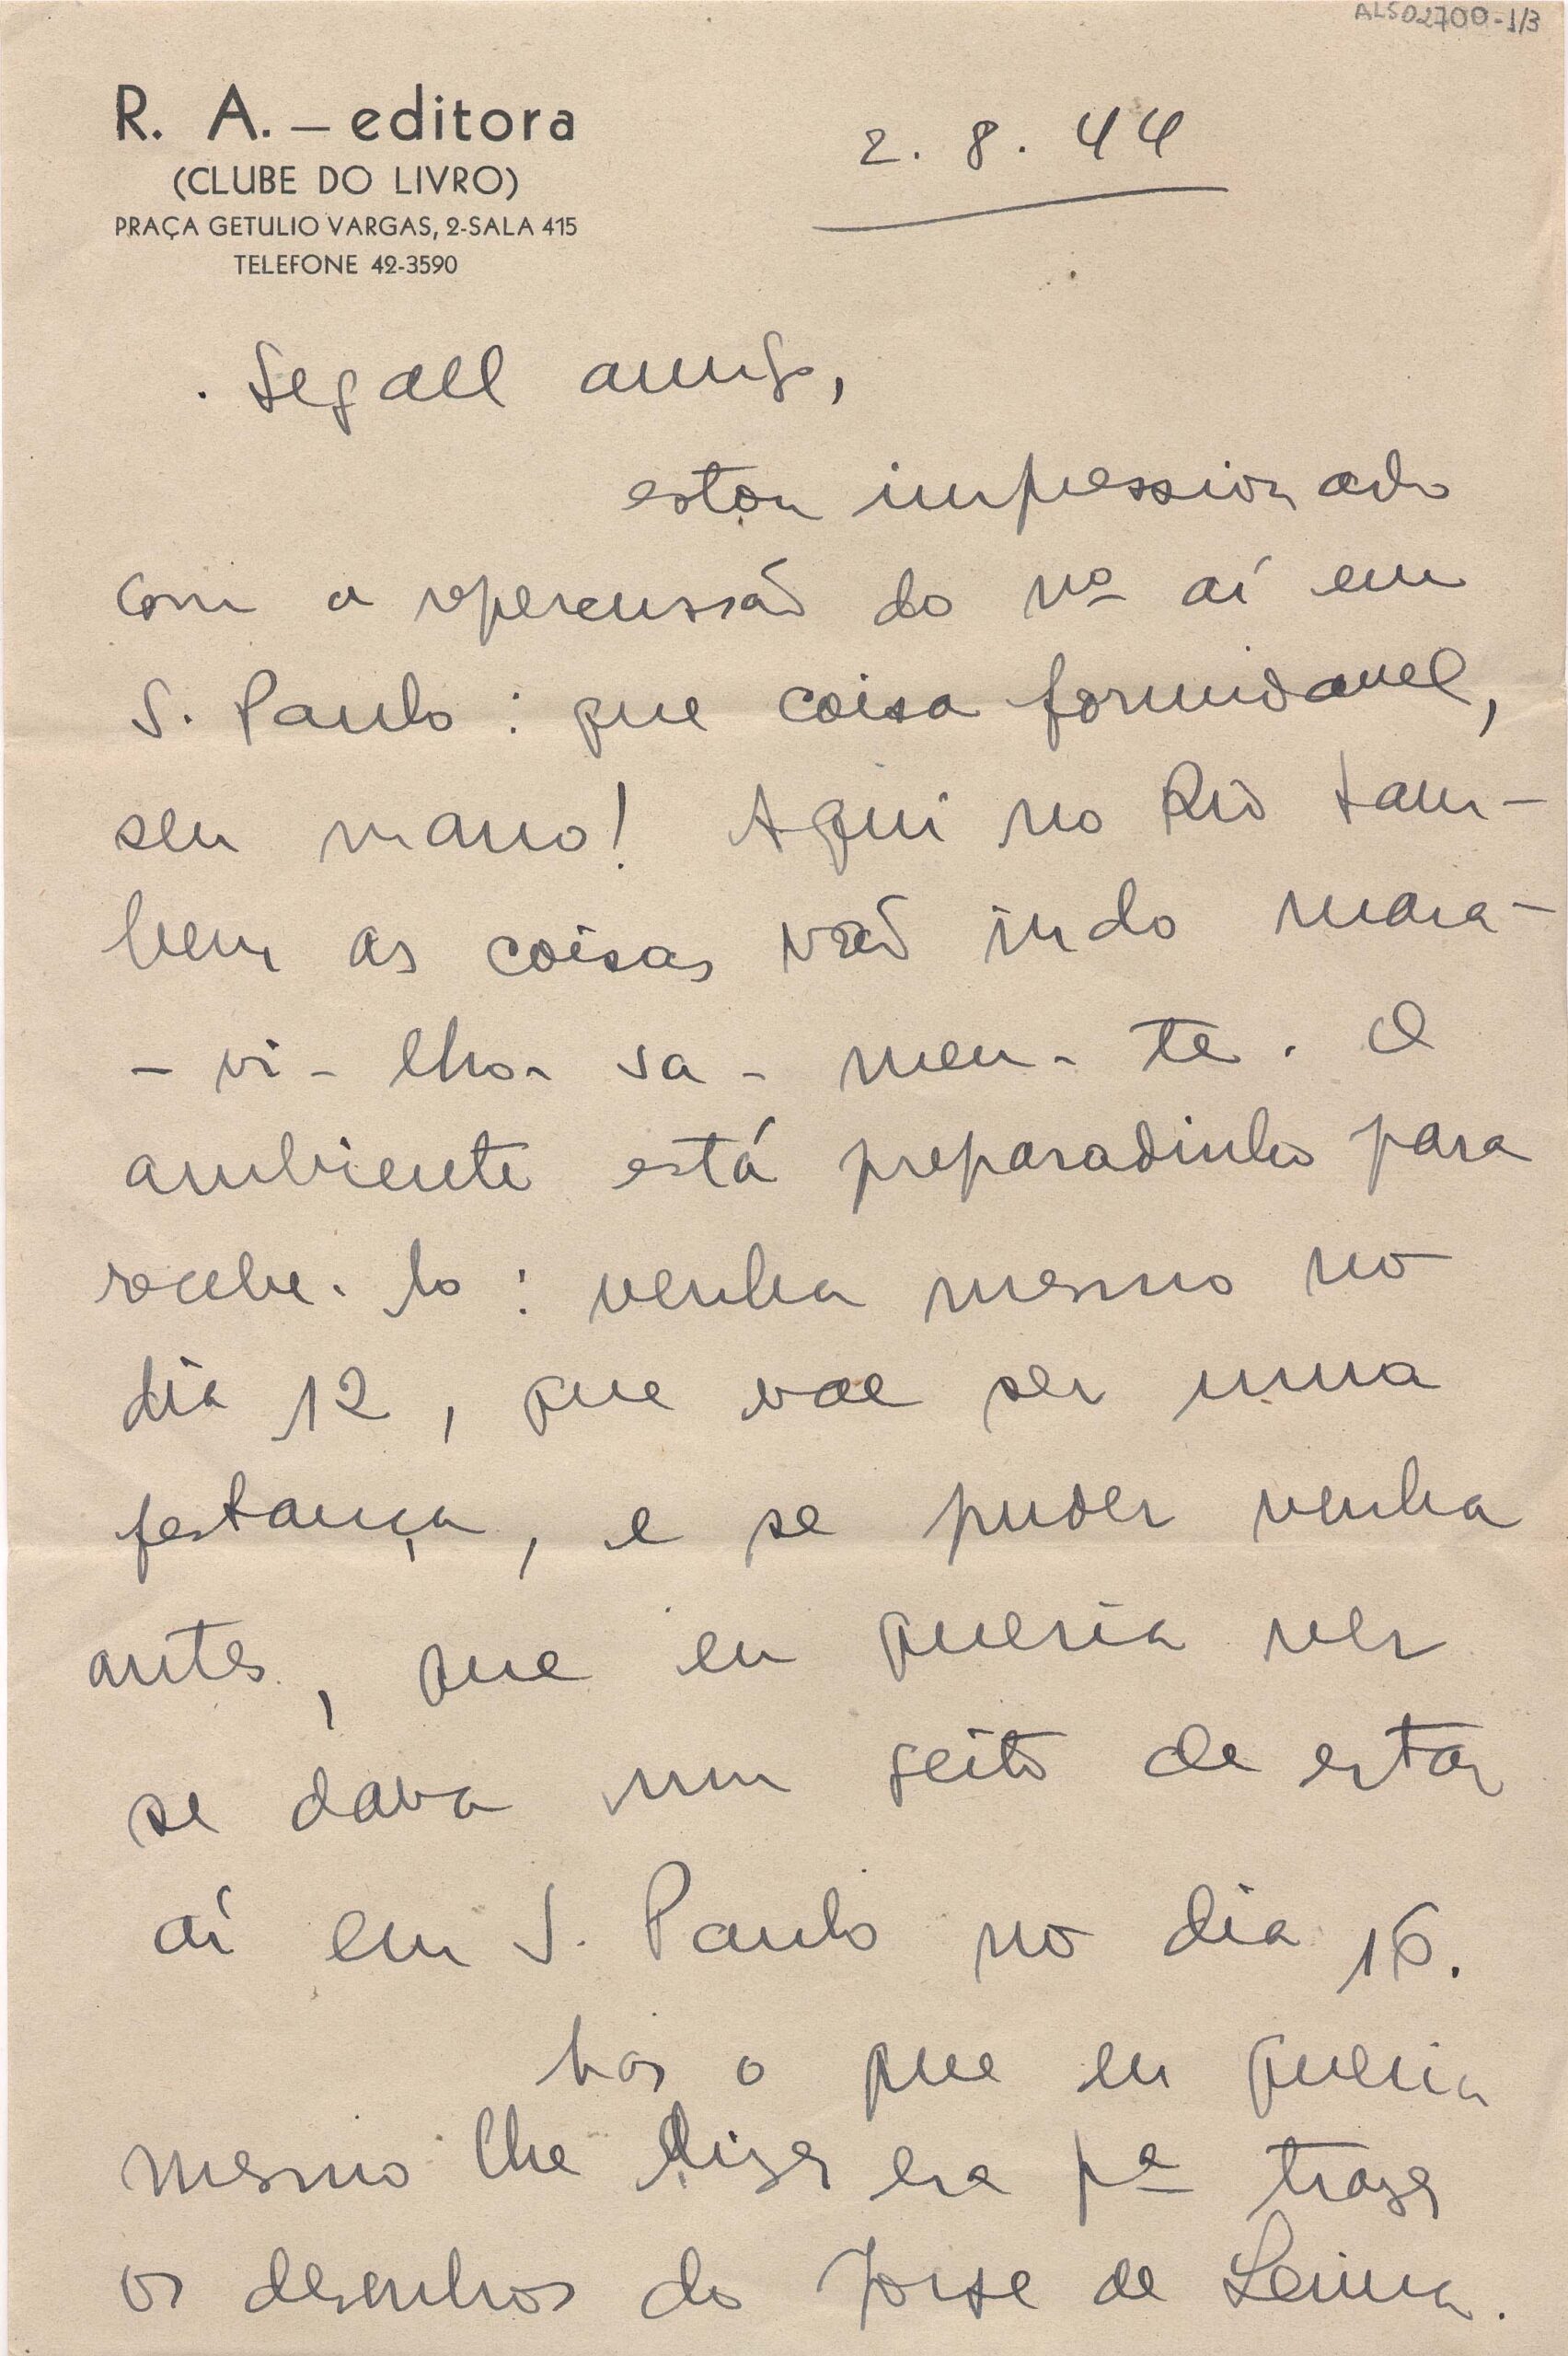 ALS02700-1/3
R. A. — editora
(CLUBE DO LIVRO)
PRAÇA GETULIO VARGAS, 2-SALA 415
TELEFONE 42-3590
2. 8. 44
Segall amigo,
estou impressionado
com a repercussão do nº aí em
S. Paulo: que coisa formidavel,
seu mano! Aqui no Rio tam-
bem as coisas vão indo mara-
- vi - lho - sa - men - te. O
ambiente está preparadinho para
recebe-lo: venha mesmo no
dia 12, que vae ser uma
festança, e se puder venha
antes, que eu queria ver
se dava um geito de estar
aí em S. Paulo no dia 16.
Mas o que eu queria
mesmo lhe dizer era pª trazer
os desenhos do Jorge de Lima.